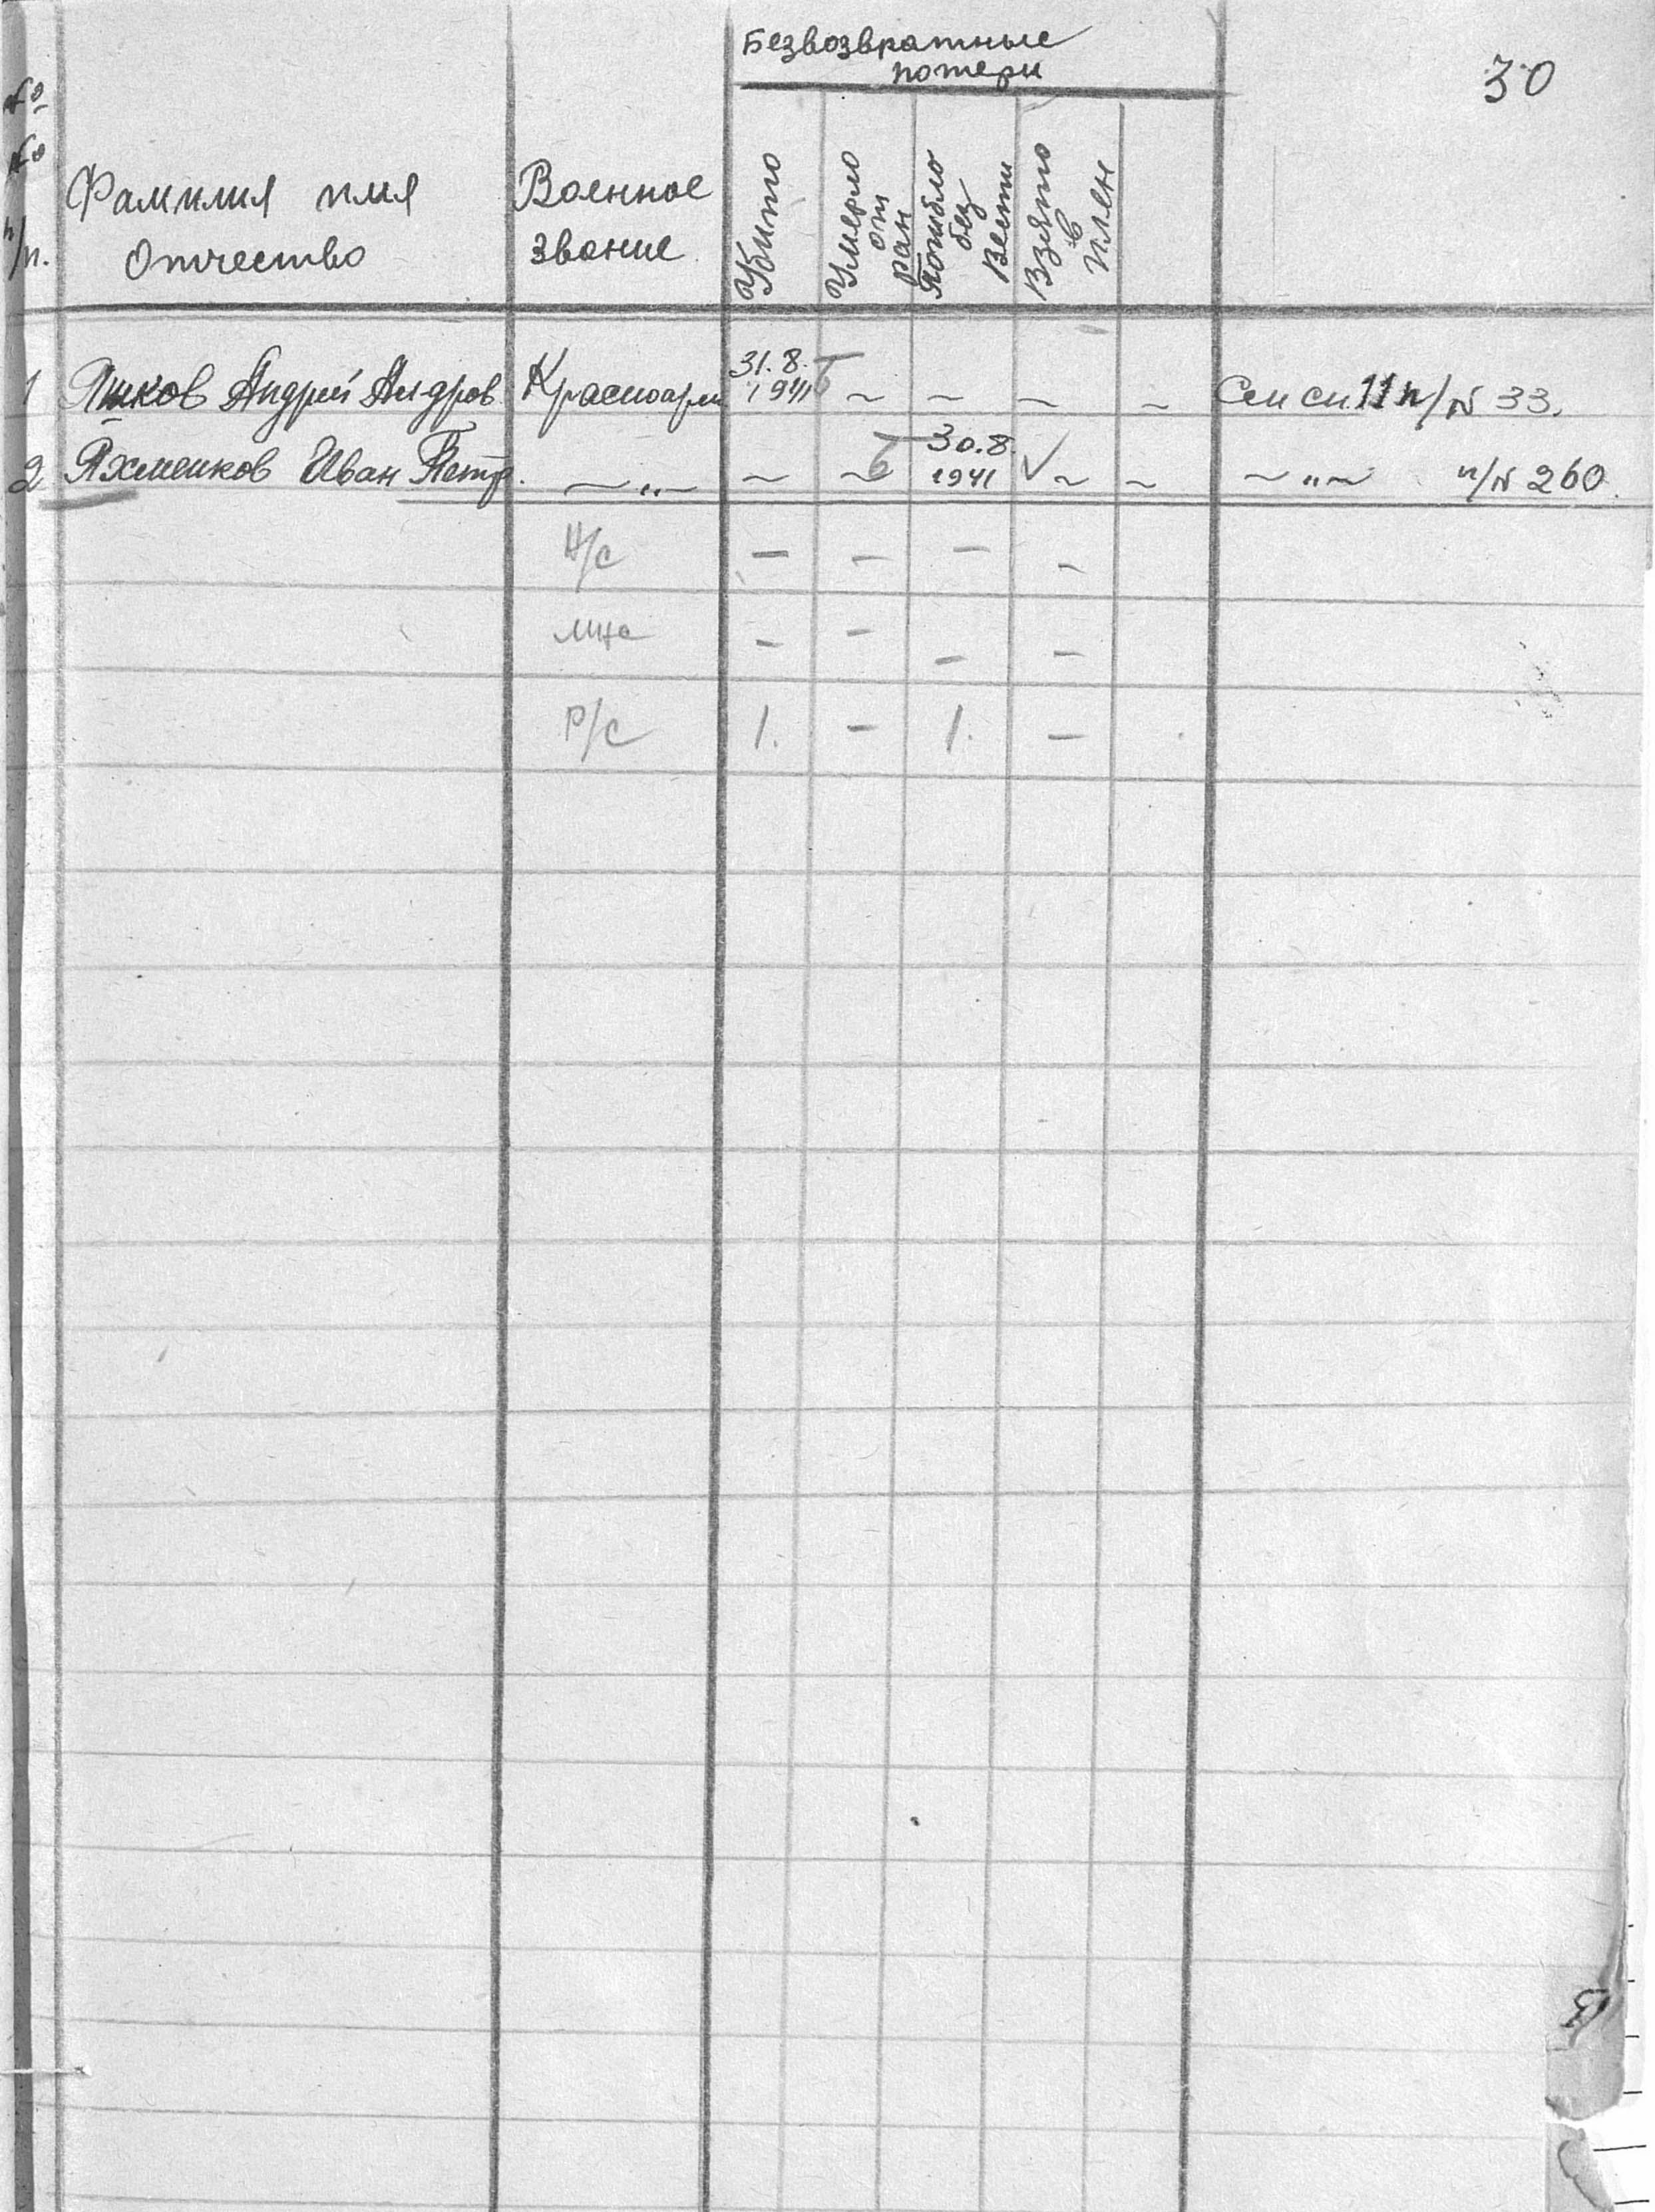 Безвозвратные
потери
30
№
№
п/п.
Фамилия имя
Отчество
Военное
звание
Убито
Умерло
от
ран
Погибло
без
вести
Взято
в
плен
1 Андрей Андров. Красноарм 31.8.
1941 ~ ~ ~ ~ См сп. 11 п/№ 33.
2 Яхменков Иван Петр. ~ „ ~ ~ ~ 30.8.
1941 √ ~ ~ ~ „ ~ п/№ 260.
Н/с – – – –
МНс – – – –
Р/с 1. – 1. –